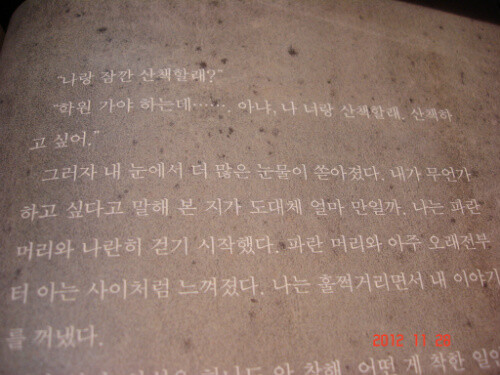 "나랑 잠깐 산책할래?"
"학원 가야 하는데……. 아냐, 나 너랑 산책할래. 산책하
고 싶어."
그러자 내 눈에서 더 많은 눈물이 쏟아졌다. 내가 무언가
하고 싶다고 말해 본 지가 도대체 얼마 만일까. 나는 파란
머리와 나란히 걷기 시작했다. 파란 머리와 아주 오래전부
터 아는 사이처럼 느껴졌다. 나는 훌쩍거리면서 내 이야기
를 꺼냈다.
안 착해. 어떤 게 착한 일인
2012 11 28